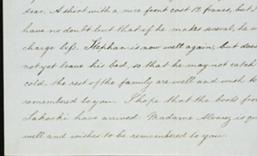 dear. A shirt with a nice front cost 12 francs, but I
have no doubt but that if he makes several, he will
charge less. Stephan is now well again; but does
not yet leave his bed, so that he may not catch
cold. the rest of the family are well and wish to be
remembered to you. I hope that the books from
have arrived. Madame
well and wishes to be remembered to you.